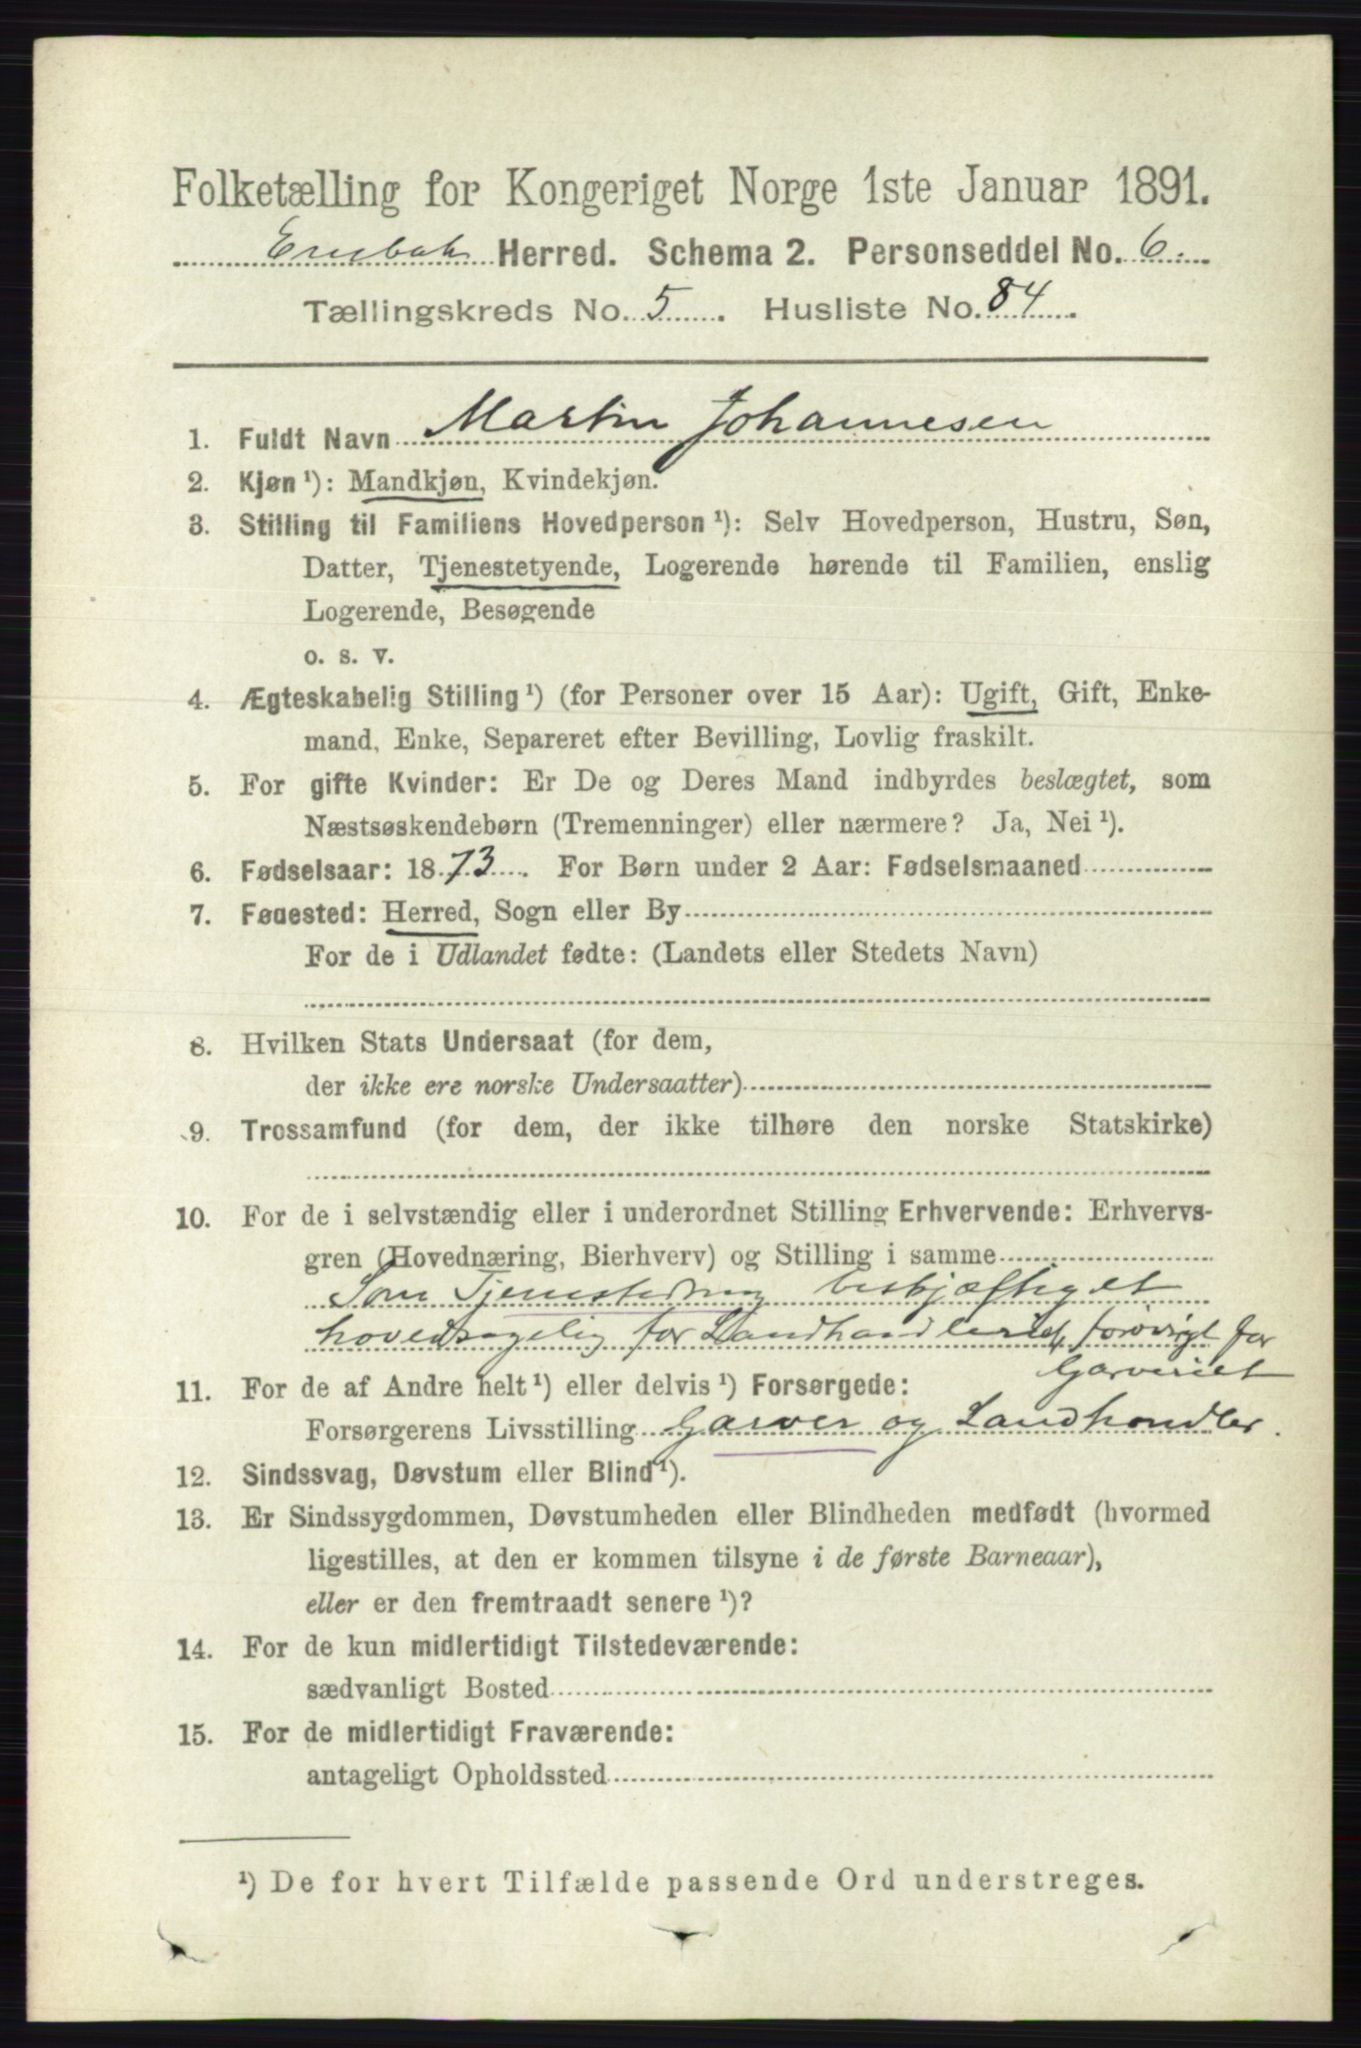 Folketælling for Kongeriget Norge 1ste Januar 1891.
Enebak Herred. Schema 2. Personseddel No. 6.
Tællingskreds No. 5. Husliste No. 84.
1. Fuldt Navn Martin Johannesen
2. Kjøn ¹): Mandkjøn, Kvindekjøn.
3. Stilling til Familiens Hovedperson ¹): Selv Hovedperson, Hustru, Søn,
Datter, Tjenestetyende, Logerende hørende til Familien, enslig
Logerende, Besøgende
o. s. v.
4. Ægteskabelig Stilling ¹) (for Personer over 15 Aar): Ugift, Gift, Enke-
mand, Enke, Separeret efter Bevilling, Lovlig fraskilt.
5. For gifte Kvinder: Er De og Deres Mand indbyrdes beslægtet, som
Næstsøskendebørn (Tremenninger) eller nærmere? Ja, Nei ¹).
6. Fødselsaar: 1873. For Børn under 2 Aar: Fødselsmaaned
7. Fødested: Herred, Sogn eller By
For de i Udlandet fødte: (Landets eller Stedets Navn)
8. Hvilken Stats Undersaat (for dem,
der ikke ere norske Undersaatter)
9. Trossamfund (for dem, der ikke tilhøre den norske Statskirke)
10. For de i selvstændig eller i underordnet Stilling Erhvervende: Erhvervs-
gren (Hovednæring, Bierhverv) og Stilling i samme
Som Tjenestedreng beskjæftiget
hovedsagelig for Landhandleriet, forøvrigt for
Garveriet
11. For de af Andre helt ¹) eller delvis ¹) Forsørgede:
Forsørgerens Livsstilling Garver og Landhandler.
12. Sindssvag, Døvstum eller Blind ¹).
13. Er Sindssygdommen, Døvstumheden eller Blindheden medfødt (hvormed
ligestilles, at den er kommen tilsyne i de første Barneaar),
eller er den fremtraadt senere ¹)?
14. For de kun midlertidigt Tilstedeværende:
sædvanligt Bosted
15. For de midlertidigt Fraværende:
antageligt Opholdssted
¹) De for hvert Tilfælde passende Ord understreges.